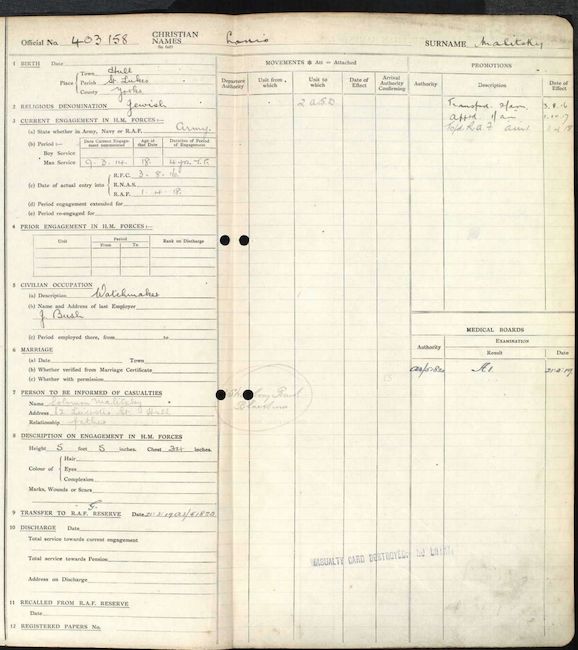 Official No. 403158 CHRISTIAN NAMES (in full) Louis SURNAME Malitsky
1 BIRTH Date
Place Town Hull
Parish St Lukes
County Yorks
2 RELIGIOUS DENOMINATION Jewish
3 CURRENT ENGAGEMENT IN H.M. FORCES:—
(a) State whether in Army, Navy or R.A.F. Army
(b) Period:— Date Current Engagement commenced Age at that Date Duration of Period of Engagement
Boy Service
Man Service 9.3.14. 18 4 yrs T.F.
(c) Date of actual entry into R.F.C. 3.8.16
R.N.A.S.
R.A.F. 1.4.18.
(d) Period engagement extended for
(e) Period re-engaged for
4 PRIOR ENGAGEMENT IN H.M. FORCES:—
Unit Period Rank on Discharge
From To
5 CIVILIAN OCCUPATION
(a) Description Watchmaker
(b) Name and Address of last Employer
J. Bush
(c) Period employed there, from to
6 MARRIAGE
(a) Date Town
(b) Whether verified from Marriage Certificate
(c) Whether with permission
7 PERSON TO BE INFORMED OF CASUALTIES
Name Solomon Malitsky
Address 12 St Hull
Relationship father
8 DESCRIPTION ON ENGAGEMENT IN H.M. FORCES
Height 5 feet 5 inches. Chest 34 inches.
Colour of Hair
Eyes
Complexion
Marks, Wounds or Scars
G.
9 TRANSFER TO R.A.F. RESERVE Date 21.2.19
10 DISCHARGE Date
Total service towards current engagement
Total service towards Pension
Address on Discharge
11 RECALLED FROM R.A.F. RESERVE
Date
12 REGISTERED PAPERS No.
MOVEMENTS * Att — Attached
Departure Authority Unit from which Unit to which Date of Effect Arrival Authority Confirming
2 ASD
CASUALTY CARD DESTROYED.
PROMOTIONS
Authority Description Date of Effect
Transfrd. 2/am 3.8.16
Appd. 1/am 17
R.A.F 18
MEDICAL BOARDS
Authority EXAMINATION
Result Date
A1. 21.2.19